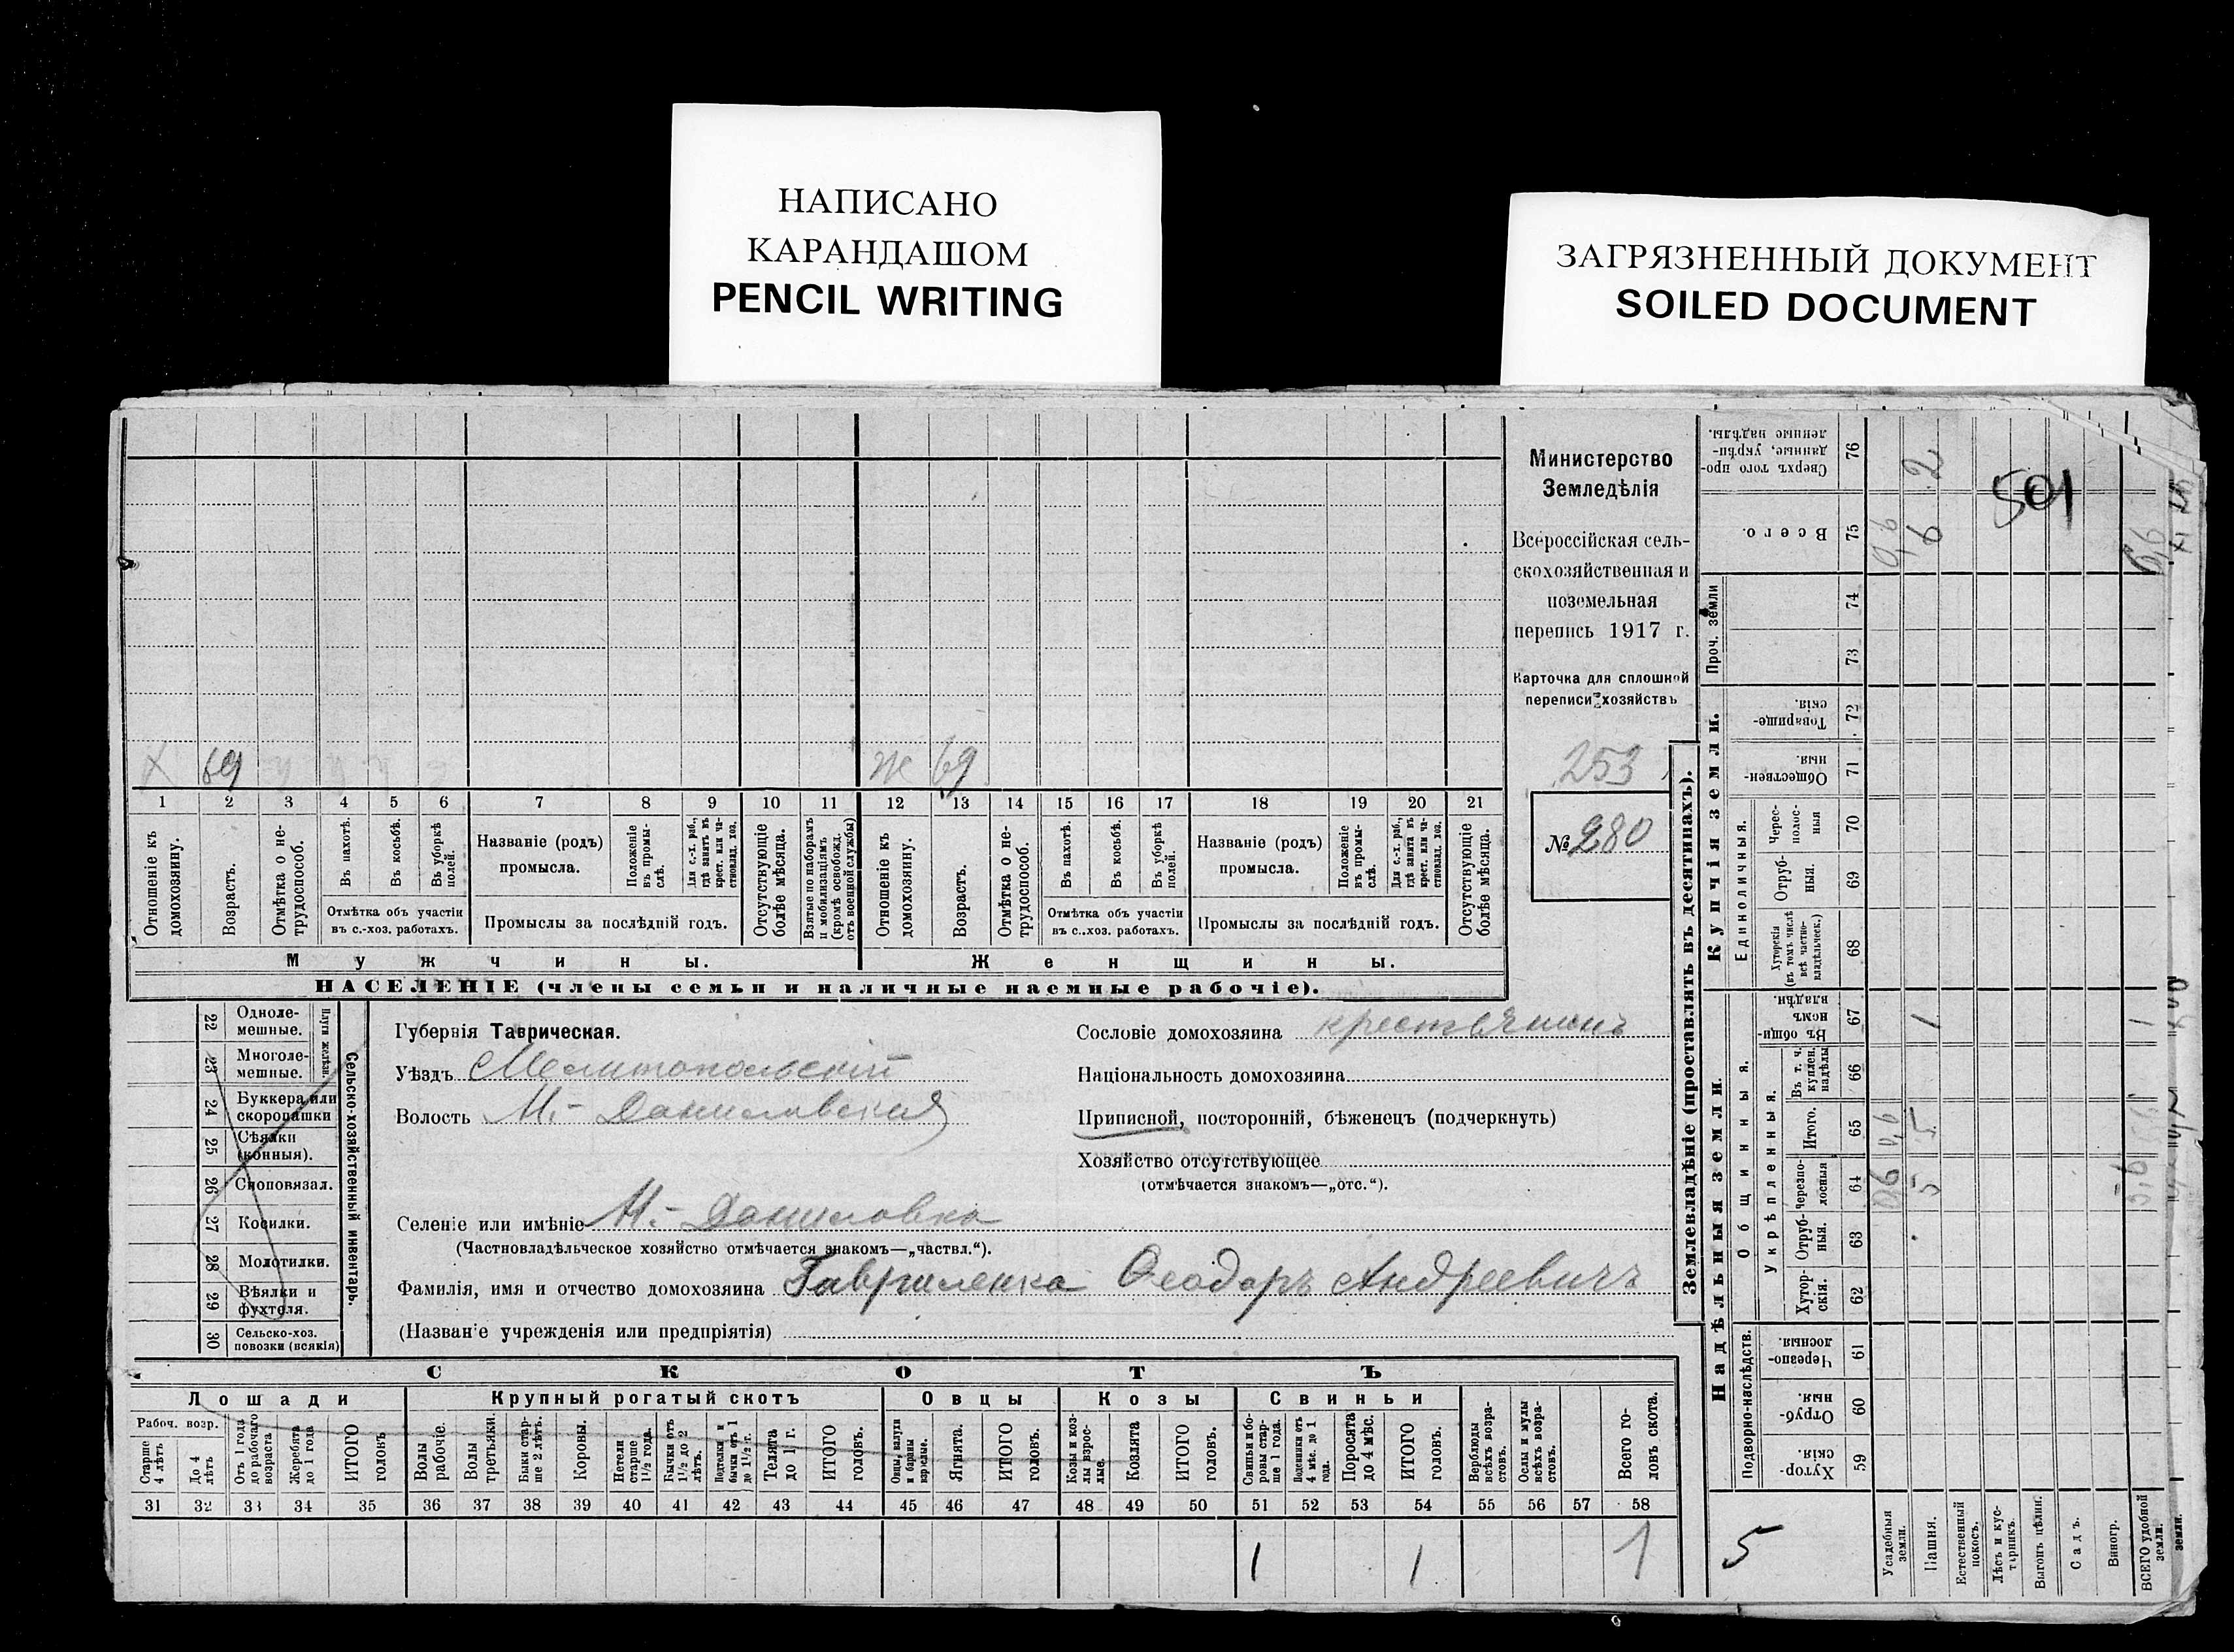 НАПИСАНО
КАРАНДАШОМ
PENCIL WRITING
ЗАГРЯЗНЕННЫЙ ДОКУМЕНТ
SOILED DOCUMENT
Министерство
Земледѣлія
Всероссійская сель-
скохозяйственная и
поземельная
перепись 1917 г.
Карточка для сплошной
переписи хозяйствъ
253
№ 280
501
Х 69
ж 69
1 2 3 4 5 6 7 8 9 10 11 12 13 14 15 16 17 18 19 20 21
Отношеніе къ домохозяину.
Возрастъ.
Отмѣтка о не-трудоспособ.
Въ пахотѣ.
Въ косьбѣ.
Въ уборкѣ полей.
Отмѣтка объ участіи
въ с.-хоз. работахъ.
Названіе (родъ)
промысла.
Положеніе въ промы-слѣ.
Для с.-х. раб., гдѣ занятъ въ крест. или ча-стновлад. хоз.
Промыслы за послѣдній годъ.
Отсутствующіе болѣе мѣсяца.
Взятые по наборамъ и мобилизаціямъ (кромѣ освобожд. отъ военной службы)
Отношеніе къ домохозяину.
Возрастъ.
Отмѣтка о не-трудоспособ.
Въ пахотѣ.
Въ косьбѣ.
Въ уборкѣ полей.
Отмѣтка объ участіи
въ с.-хоз. работахъ.
Названіе (родъ)
промысла.
Положеніе въ промы-слѣ.
Для с.-х. раб., гдѣ занята въ крест. или ча-стновлад. хоз.
Промыслы за послѣдній годъ.
Отсутствующіе болѣе мѣсяца.
Мужчины.
Женщины.
НАСЕЛЕНІЕ (члены семьи и наличные наемные рабочіе).
22 Одноле-мешные.
23 Многоле-мешные.
Плуги желѣзн.
24 Буккера или скоропашки
25 Сѣялки (конныя).
26 Сноповязал.
27 Косилки.
28 Молотилки.
29 Вѣялки и фухтеля.
30 Сельско-хоз. повозки (всякія)
Сельско-хозяйственный инвентарь.
Губернія Таврическая.
Уѣздъ Мелитопольскій
Волость Н.-Даниловская
Селеніе или имѣніе Н.-Даниловка
(Частновладѣльческое хозяйство отмѣчается знакомъ—„частвл.“).
Фамилія, имя и отчество домохозяина Гавриленко Ѳеодоръ Андреевичъ
(Названіе учрежденія или предпріятія)
Сословіе домохозяина крестьянинъ
Національность домохозяина
Приписной, посторонній, бѣженецъ (подчеркнуть)
Хозяйство отсутствующее
(отмѣчается знакомъ—„отс.“).
СКОТЪ
Лошади
Крупный рогатый скотъ
Овцы
Козы
Свиньи
Рабоч. возр.
Старше 4 лѣтъ
До 4 лѣтъ
Отъ 1 года до рабочаго возраста
Жеребята до 1 года
ИТОГО головъ
Волы рабочіе.
Волы третьяки.
Быки стар-ше 2 лѣтъ.
Коровы.
Нетели старше 1½ года.
Бычки отъ 1½ до 2 лѣтъ.
Подтелки и бычки отъ 1 до 1½ г.
Телята до 1 г.
ИТОГО головъ.
Овцы, валухи и бараны взрослые.
Ягнята.
ИТОГО головъ.
Козы и коз-лы взрос-лые.
Козлята
ИТОГО головъ.
Свиньи и бо-ровы стар-ше 1 года.
Подсвинки отъ 4 мѣс. до 1 года.
Поросята до 4 мѣс.
ИТОГО головъ.
Верблюды всѣхъ возра-стовъ.
Ослы и мулы всѣхъ возра-стовъ.
Всего го-ловъ скота.
31 32 33 34 35 36 37 38 39 40 41 42 43 44 45 46 47 48 49 50 51 52 53 54 55 56 57 58
1 1 1
Землевладѣніе (проставлять въ десятинахъ).
Надѣльныя земли.
Купчія земли.
Проч. земли
Подворно-наслѣдств.
Общинныя.
Укрѣпленныя.
Единоличныя.
Хутор-скія. 59
Отруб-ныя. 60
Черезпо-лосныя 61
Хутор-скія. 62
Отруб-ныя. 63
Черезпо-лосныя 64
Итого. 65
Въ т. ч. куплен. надѣлы 66
Въ общи-номъ владѣн. 67
Хуторскія (въ томъ числѣ всѣ частно-владѣльческ.) 68
Отруб-ныя. 69
Черес-полос-ныя 70
Обществен-ныя 71
Товарище-скія. 72
73
74
Всего. 75
Сверхъ того про-данные, укрѣп-ленные надѣлы. 76
5
Усадебныя земли.
0,6 0,6 0,6
Пашня.
5 5 1 6 2
Естественный покосъ.
Лѣсъ и кус-тарникъ.
Выгонъ цѣлин.
Садъ.
Виногр.
ВСЕГО удобной земли.
5,6 5,6 1 6,6
земли.